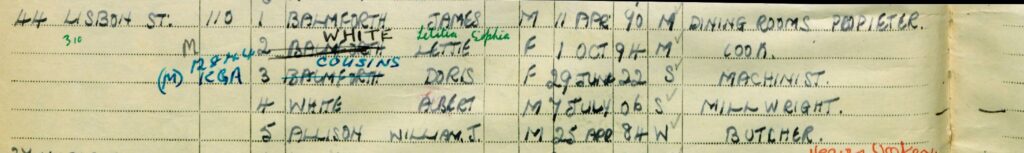 44 LISBON ST. 110 1 BALMFORTH JAMES M 11 APR 90 M DINING ROOMS PROPIETER.
310 M 2 BALMFORTH WHITE LETTIE Letitia Sophia F 1 OCT 94 M COOK.
(M) KGA 3 BALMFORTH COUSINS DORIS F 29 22 S MACHINIST.
4 WHITE ALBERT M 7 JULY 06 S MILLWRIGHT.
5 ALLISON WILLIAM.J. M 25 APR 84 W BUTCHER.